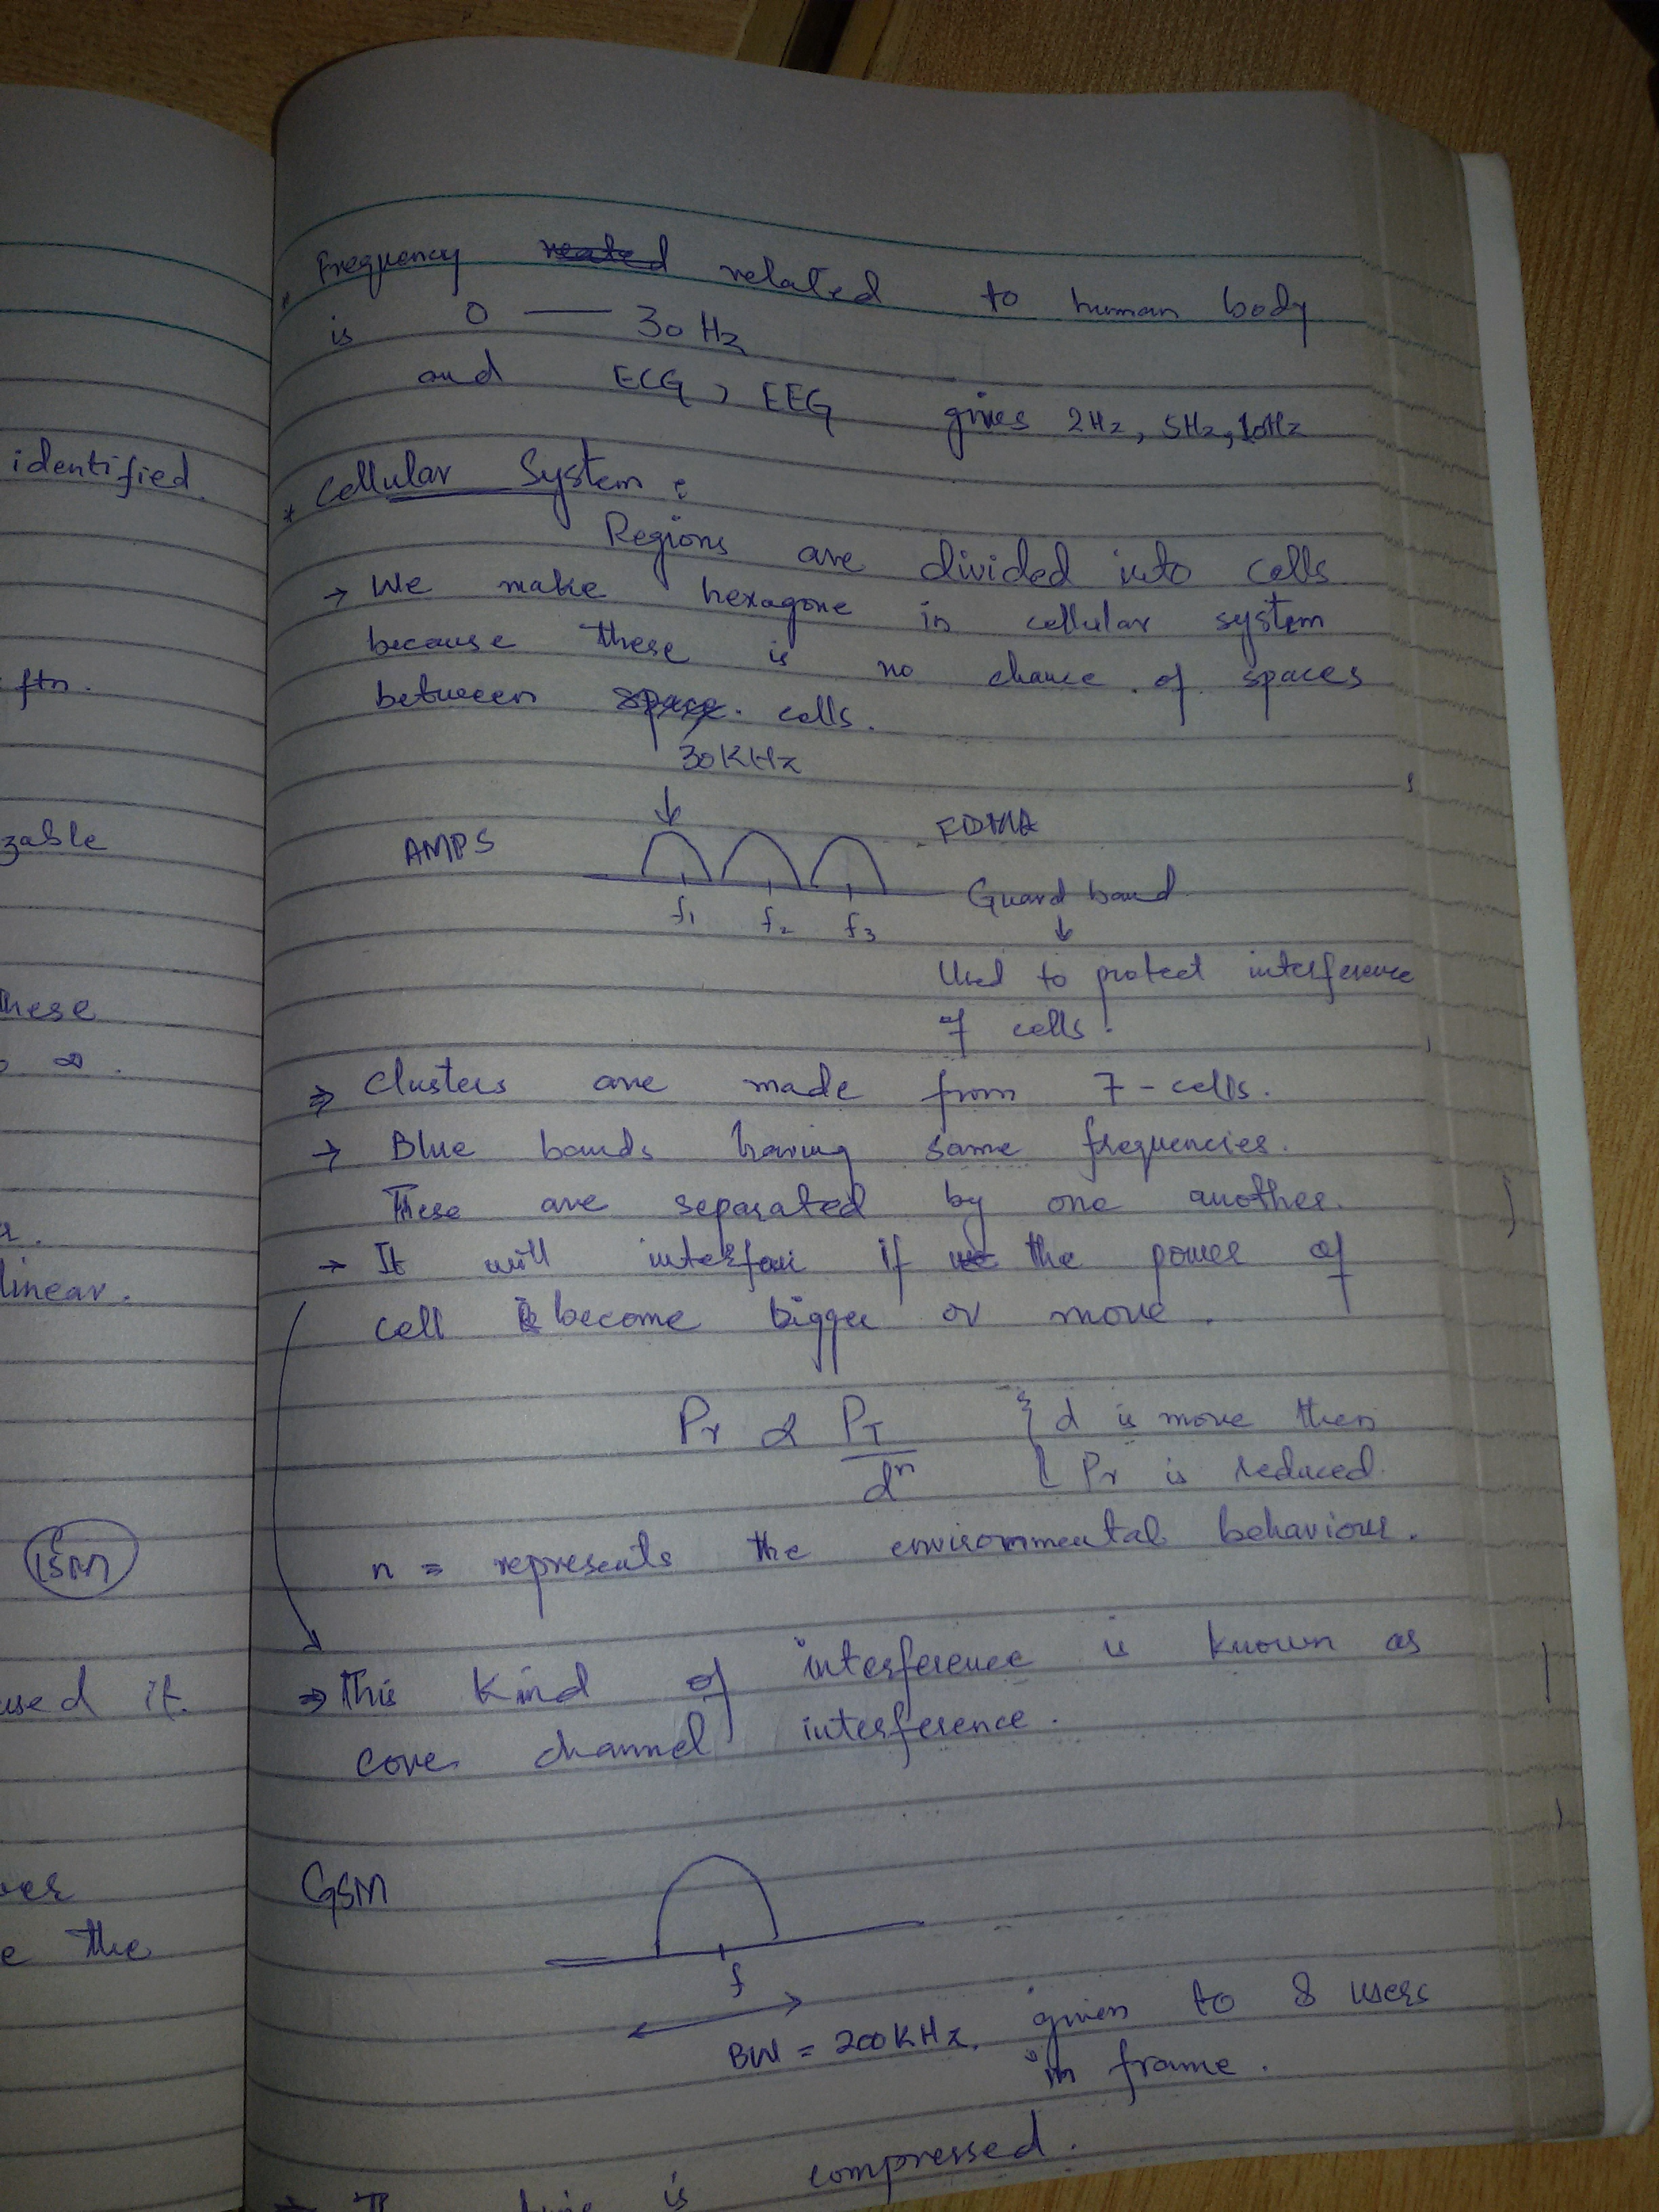 identified.
ftn.
zable
these
∞.
r.
linear.
ISM
used it.
ver
e the
* Frequency related to human body
is 0 — 30 Hz
and ECG, EEG gives 2Hz, 5Hz, 10Hz
* Cellular System :
Regions are divided into cells
→ We make hexagone in cellular system
because these is no chance of spaces
between cells.
30KHz
↓
AMPS FDMA
f1 f2 f3 Guard band
↓
Used to protect interference
of cells.
⇒ Clusters are made from 7-cells.
→ Blue bands having same frequencies.
These are separated by one another.
→ It will if the power of
cell become bigger or more.
Pr ∝ PT/dⁿ { d is more then
Pr is reduced.
n = represents the environmental behaviour.
⇒ This kind of interference is known as
core channel interference.
GSM
f
BW = 200KHz. given to 8 users
in frame.
is compressed.